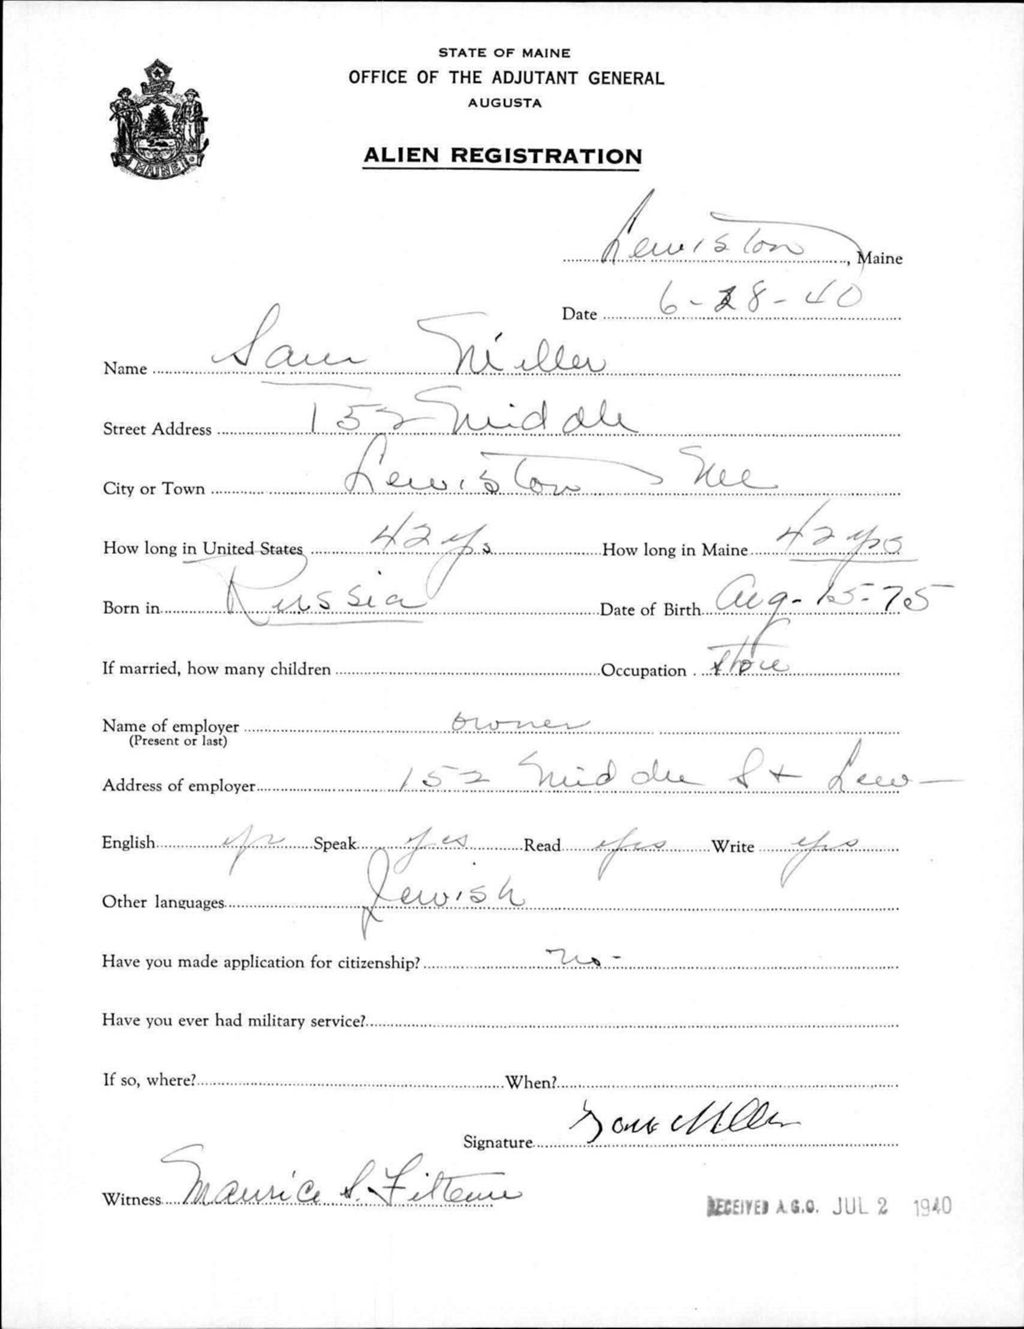 STATE OF MAINE
OFFICE OF THE ADJUTANT GENERAL
AUGUSTA
MAINE
ALIEN REGISTRATION
Lewiston, Maine
Date 6-28-40
Name Sam Miller
Street Address 152 Middle
City or Town Lewiston Me
How long in United States 42 yrs How long in Maine 42 yrs
Born in Russia Date of Birth Aug-15-75
If married, how many children Occupation Store
Name of employer owner
(Present or last)
Address of employer 152 Middle St Lew
English Speak yes Read yes Write yes
Other languages Jewish
Have you made application for citizenship? no-
Have you ever had military service?
If so, where? When?
Signature Miller
Witness Maurice S.
RECEIVED A.G.O. JUL 2 1940